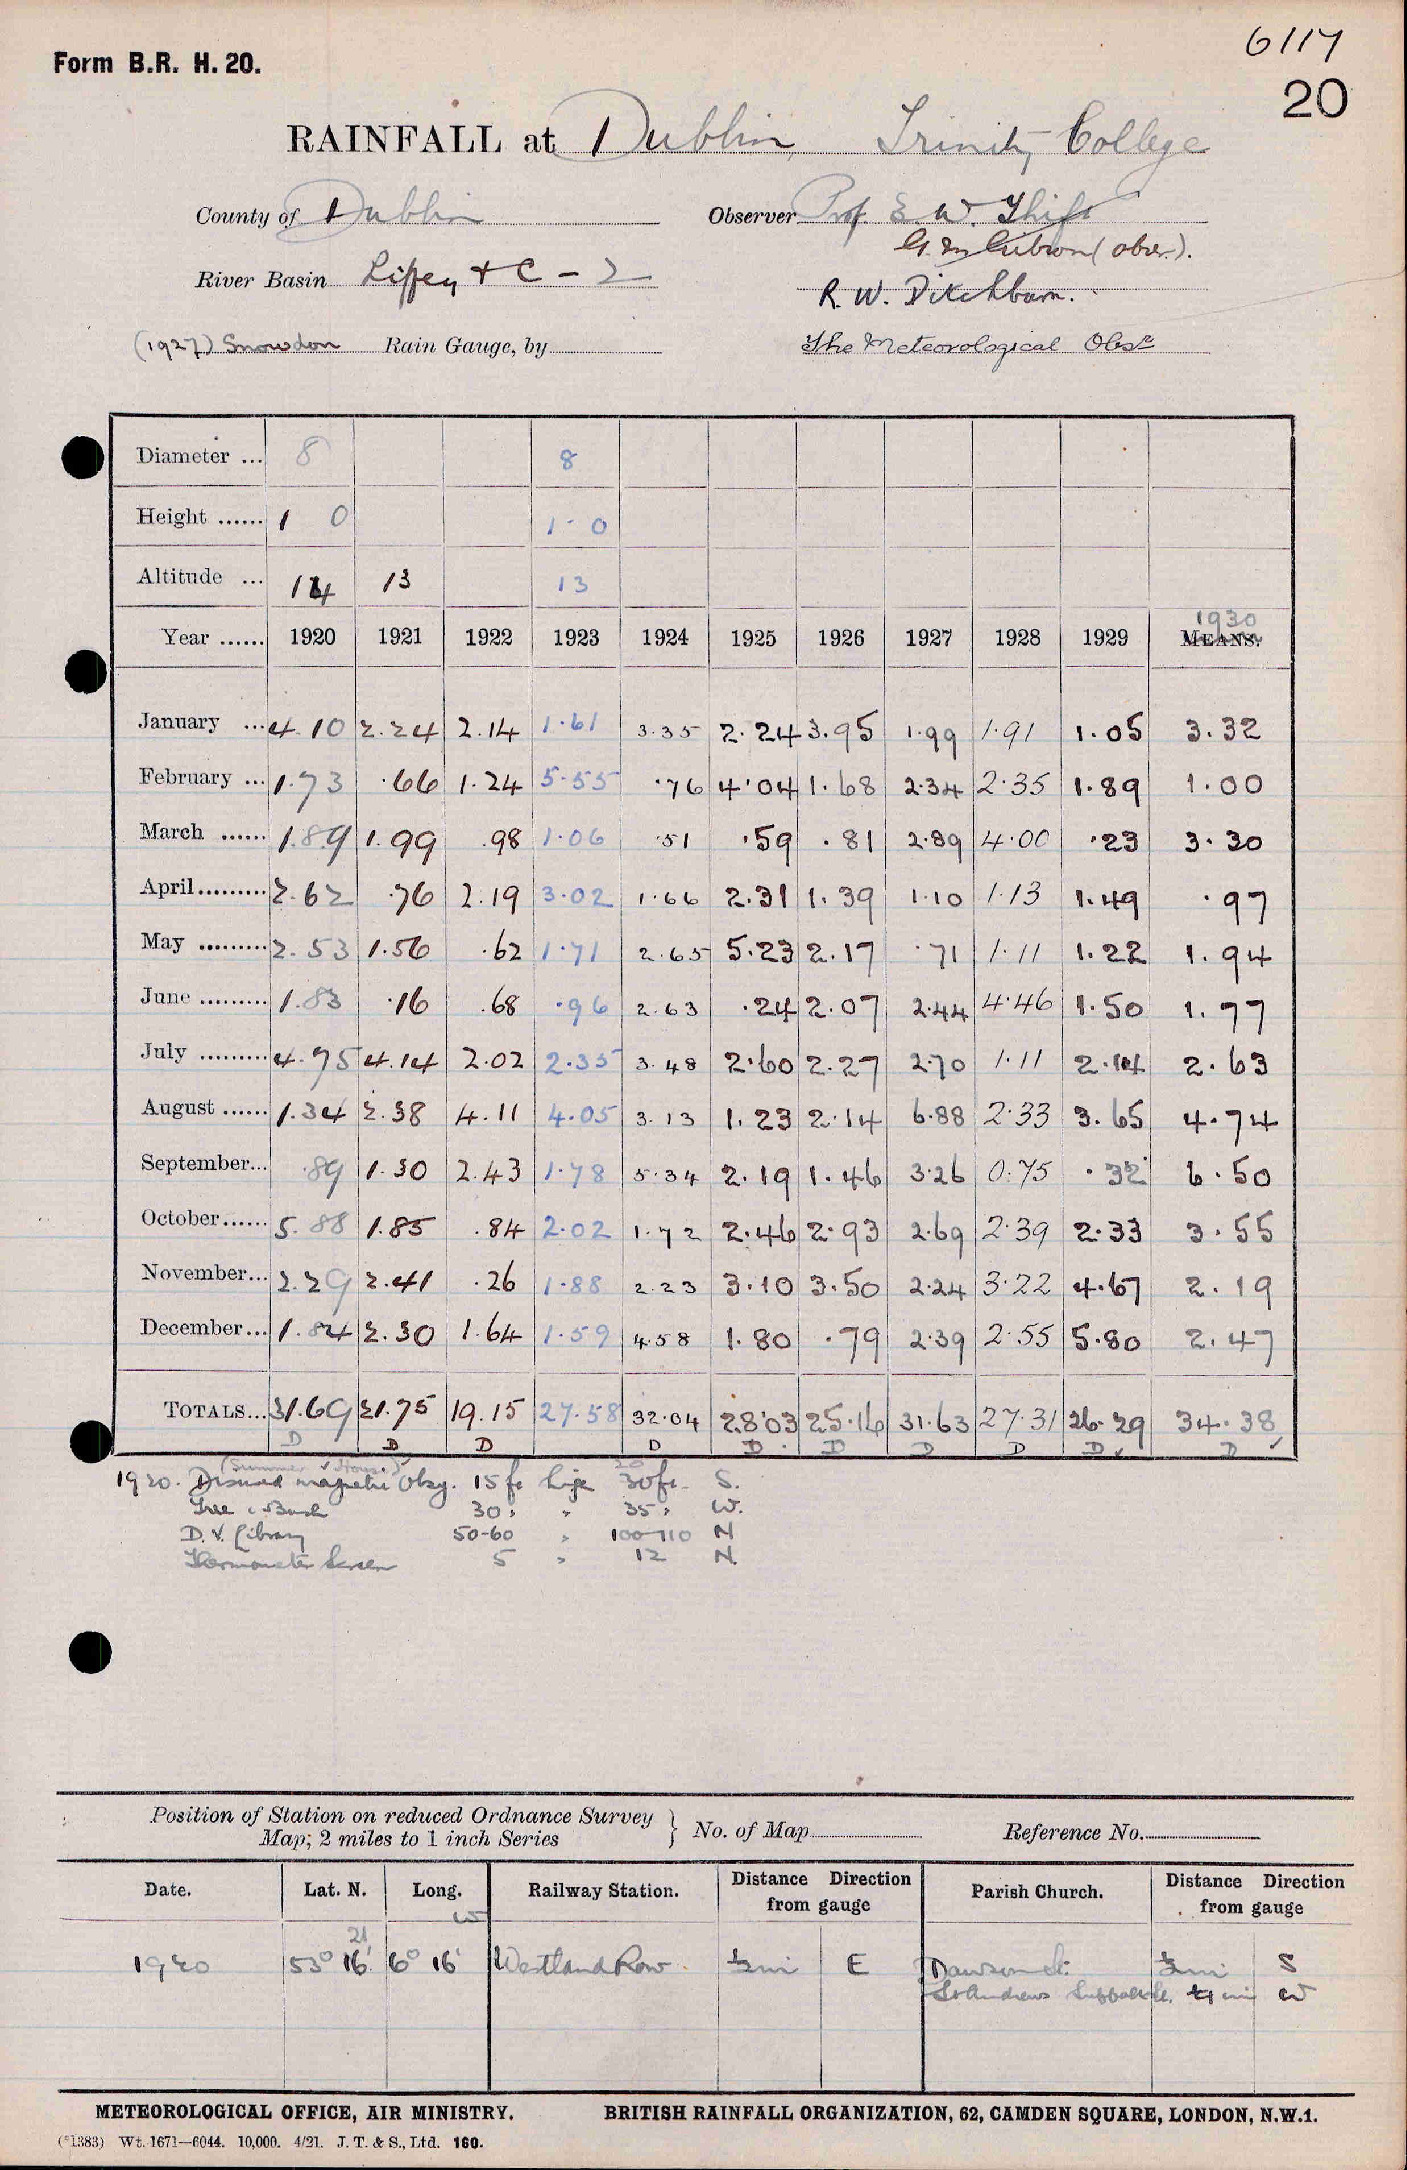 6117
Form B.R. H. 20.
20
RAINFALL at Dublin, Trinity College
County of Dublin Observer Prof. E. W. Thift
G. M. Gibson (obsr.).
River Basin Liffey + C - 2
R. W. Ditchburn.
(1927) Snowdon Rain Gauge, by
The Meteorological Obsr
Diameter ... 8 8
Height ...... 1 0 1 - 0
Altitude ... 14 13 13
1930
Year ...... 1920 1921 1922 1923 1924 1925 1926 1927 1928 1929 MEANS.
January ... 4.10 2.24 2.14 1.61 3.35 2.24 3.95 1.99 1.91 1.05 3.32
February ... 1.73 .66 1.24 5.55 .76 4.04 1.68 2.34 2.35 1.89 1.00
March ...... 1.89 1.99 .98 1.06 .51 .59 .81 2.89 4.00 .23 3.30
April ......... 2.62 .76 2.19 3.02 1.66 2.31 1.39 1.10 1.13 1.49 .97
May ......... 2.53 1.56 .62 1.71 2.65 5.23 2.17 .71 1.11 1.22 1.94
June ......... 1.83 .16 .68 .96 2.63 .24 2.07 2.44 4.46 1.50 1.77
July ......... 4.75 4.14 2.02 2.35 3.48 2.60 2.27 2.70 1.11 2.14 2.63
August ...... 1.34 2.38 4.11 4.05 3.13 1.23 2.14 6.88 2.33 3.65 4.74
September... .89 1.30 2.43 1.78 5.34 2.19 1.46 3.26 0.75 .32 6.50
October...... 5.88 1.85 .84 2.02 1.72 2.46 2.93 2.69 2.39 2.33 3.55
November... 2.29 2.41 .26 1.88 2.23 3.10 3.50 2.24 3.22 4.67 2.19
December... 1.84 2.30 1.64 1.59 4.58 1.80 .79 2.39 2.55 5.80 2.47
TOTALS... 31.69 21.75 19.15 27.58 32.04 28.03 25.16 31.63 27.31 26.29 34.38
D D D D D D D D D D
(Summer House)
1920. Disused magnetic Obsy. 15 ft high 30 ft. S.
Tree & Bush 30 " " 35 " W.
D. V. Library 50-60 " 100-110 N
Thermometer Screen 5 " 12 N.
Position of Station on reduced Ordnance Survey
Map; 2 miles to 1 inch Series } No. of Map Reference No.
Date. Lat. N. Long. Railway Station. Distance Direction from gauge Parish Church. Distance Direction from gauge
W
21
1920 53° 16' 6° 16' Westland Row ½ mi E Dawson St. ½ mi S
St Andrews Suffolk St. ¼ mi W
METEOROLOGICAL OFFICE, AIR MINISTRY. BRITISH RAINFALL ORGANIZATION, 62, CAMDEN SQUARE, LONDON, N.W.1.
(*1383) Wt. 1671—6044. 10,000. 4/21. J. T. & S., Ltd. 160.